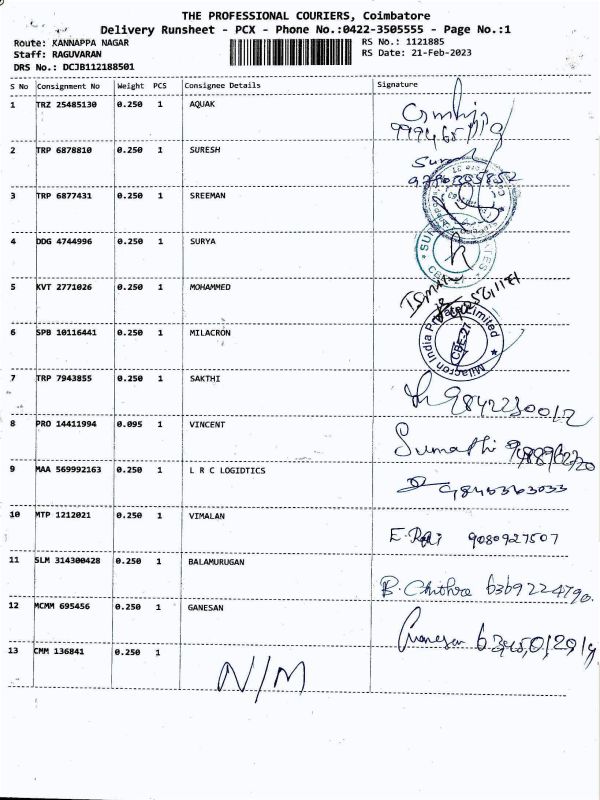 THE PROFESSIONAL COURIERS, Coimbatore
Delivery Runsheet - PCX - Phone No.:0422-3505555 - Page No.:1
Route: KANNAPPA NAGAR
Staff: RAGUVARAN
DRS No.: DCJB112188501
RS No.: 1121885
RS Date: 21-Feb-2023
S No Consignment No Weight PCS Consignee Details Signature
1 TRZ 25485130 0.250 1 AQUAK
2 TRP 6878810 0.250 1 SURESH
3 TRP 6877431 0.250 1 SREEMAN
4 DDG 4744996 0.250 1 SURYA
CBE-27
5 KVT 2771026 0.250 1 MOHAMMED
6 SPB 10116441 0.250 1 MILACRON
Milacron India Private Limited
CBE-27
7 TRP 7943855 0.250 1 SAKTHI
8 PRO 14411994 0.095 1 VINCENT
Sumathi
9 MAA 569992163 0.250 1 L R C LOGIDTICS
10 MTP 1212021 0.250 1 VIMALAN
9080927507
11 SLM 314300428 0.250 1 BALAMURUGAN
B. Chithra 6369224790
12 MCMM 695456 0.250 1 GANESAN
Ganesan
13 CMM 136841 0.250 1
N/M